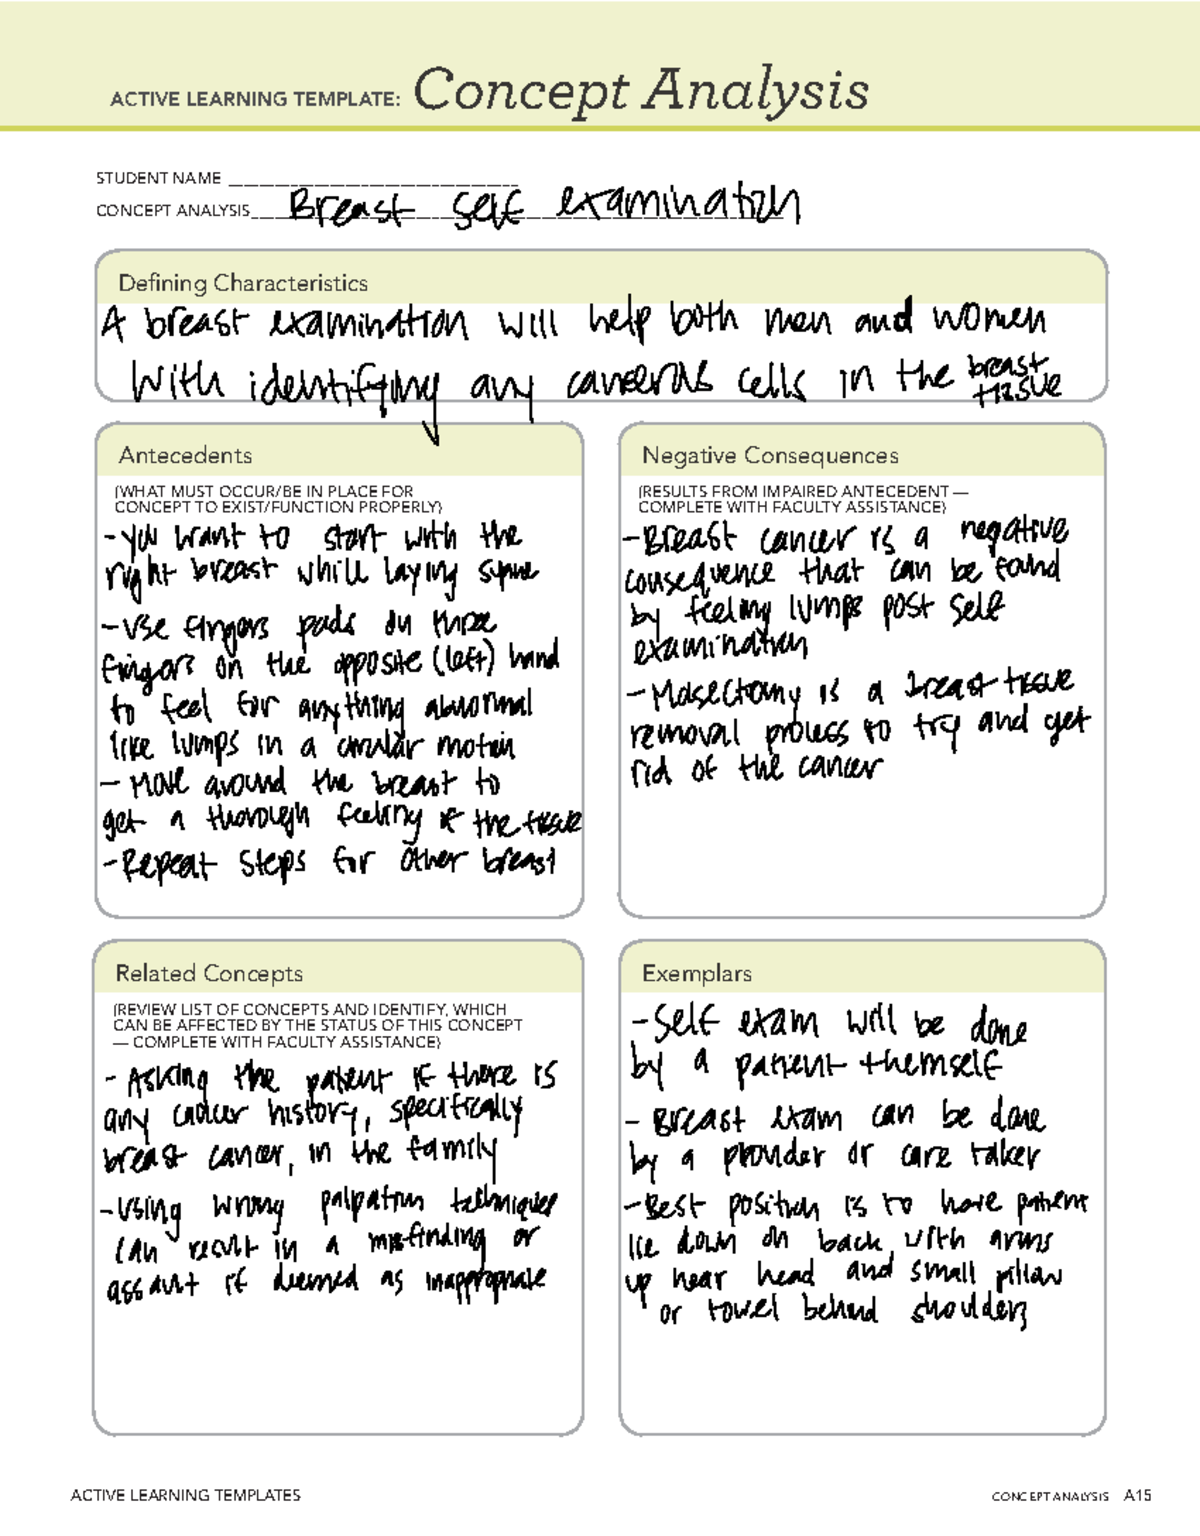 ACTIVE LEARNING TEMPLATE: Concept Analysis
STUDENT NAME
CONCEPT ANALYSIS Breast self examination
Defining Characteristics
A breast examination will help both men and women
with identifying any cancerous cells in the breast
tissue
Antecedents
(WHAT MUST OCCUR/BE IN PLACE FOR
CONCEPT TO EXIST/FUNCTION PROPERLY)
- You want to start with the
right breast while laying supine
- Use fingers pads on three
fingers on the opposite (left) hand
to feel for anything abnormal
like lumps in a circular motion
- Move around the breast to
get a thorough feeling of the tissue
- Repeat steps for other breast
Negative Consequences
(RESULTS FROM IMPAIRED ANTECEDENT —
COMPLETE WITH FACULTY ASSISTANCE)
- Breast cancer is a negative
consequence that can be found
by feeling lumps post self
examination
- Masectomy is a breast tissue
removal process to try and get
rid of the cancer
Related Concepts
(REVIEW LIST OF CONCEPTS AND IDENTIFY, WHICH
CAN BE AFFECTED BY THE STATUS OF THIS CONCEPT
— COMPLETE WITH FACULTY ASSISTANCE)
- Asking the patient if there is
any cancer history, specifically
breast cancer, in the family
- Using wrong palpation techniques
can result in a misfinding or
assault if deemed as inappropriate
Exemplars
- Self exam will be done
by a patient themself
- Breast exam can be done
by a provider or care taker
- Best position is to have patient
lie down on back, with arms
up near head and small pillow
or towel behind shoulders
ACTIVE LEARNING TEMPLATES
CONCEPT ANALYSIS A15